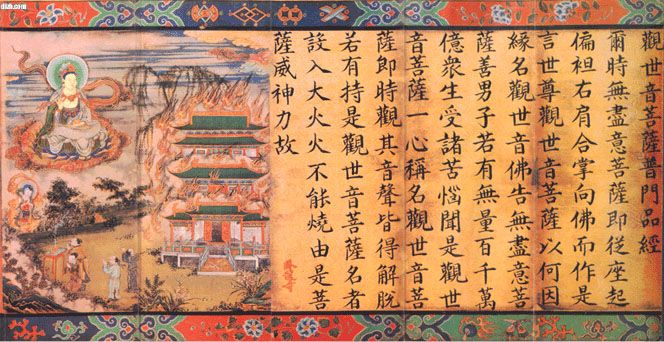 觀世音菩薩普門品經
爾時無盡意菩薩即從座起
偏袒右肩合掌向佛而作是
言世尊觀世音菩薩以何因
緣名觀世音佛告無盡意菩
薩善男子若有無量百千萬
億衆生受諸苦惱聞是觀世
音菩薩一心稱名觀世音菩
薩即時觀其音聲皆得解脱
若有持是觀世音菩薩名者
設入大火火不能燒由是菩
薩威神力故